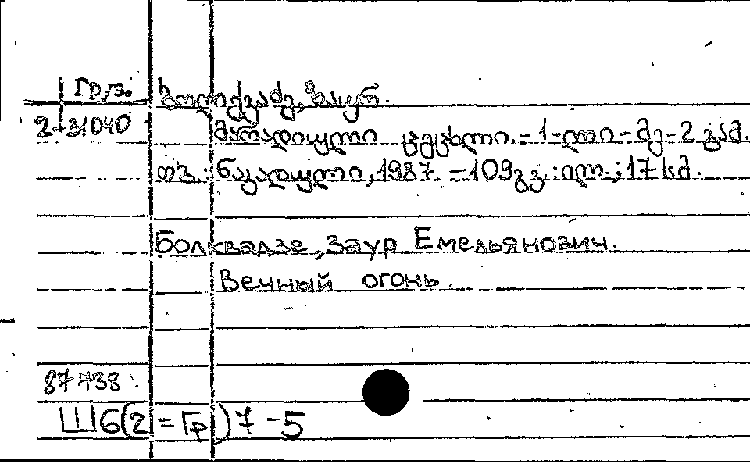 Груз.
2-31040
ბოლქვაძე, ზაურ.
მარადიული ცეცხლი. - 1-ლი - მე-2 გამ.
თბ.: ნაკადული, 1987. - 109 გვ.: ილ.; 17 სმ.
Болквадзе, Заур Емельянович.
Вечный огонь.
87-738
Ш6(2=Гр)7-5